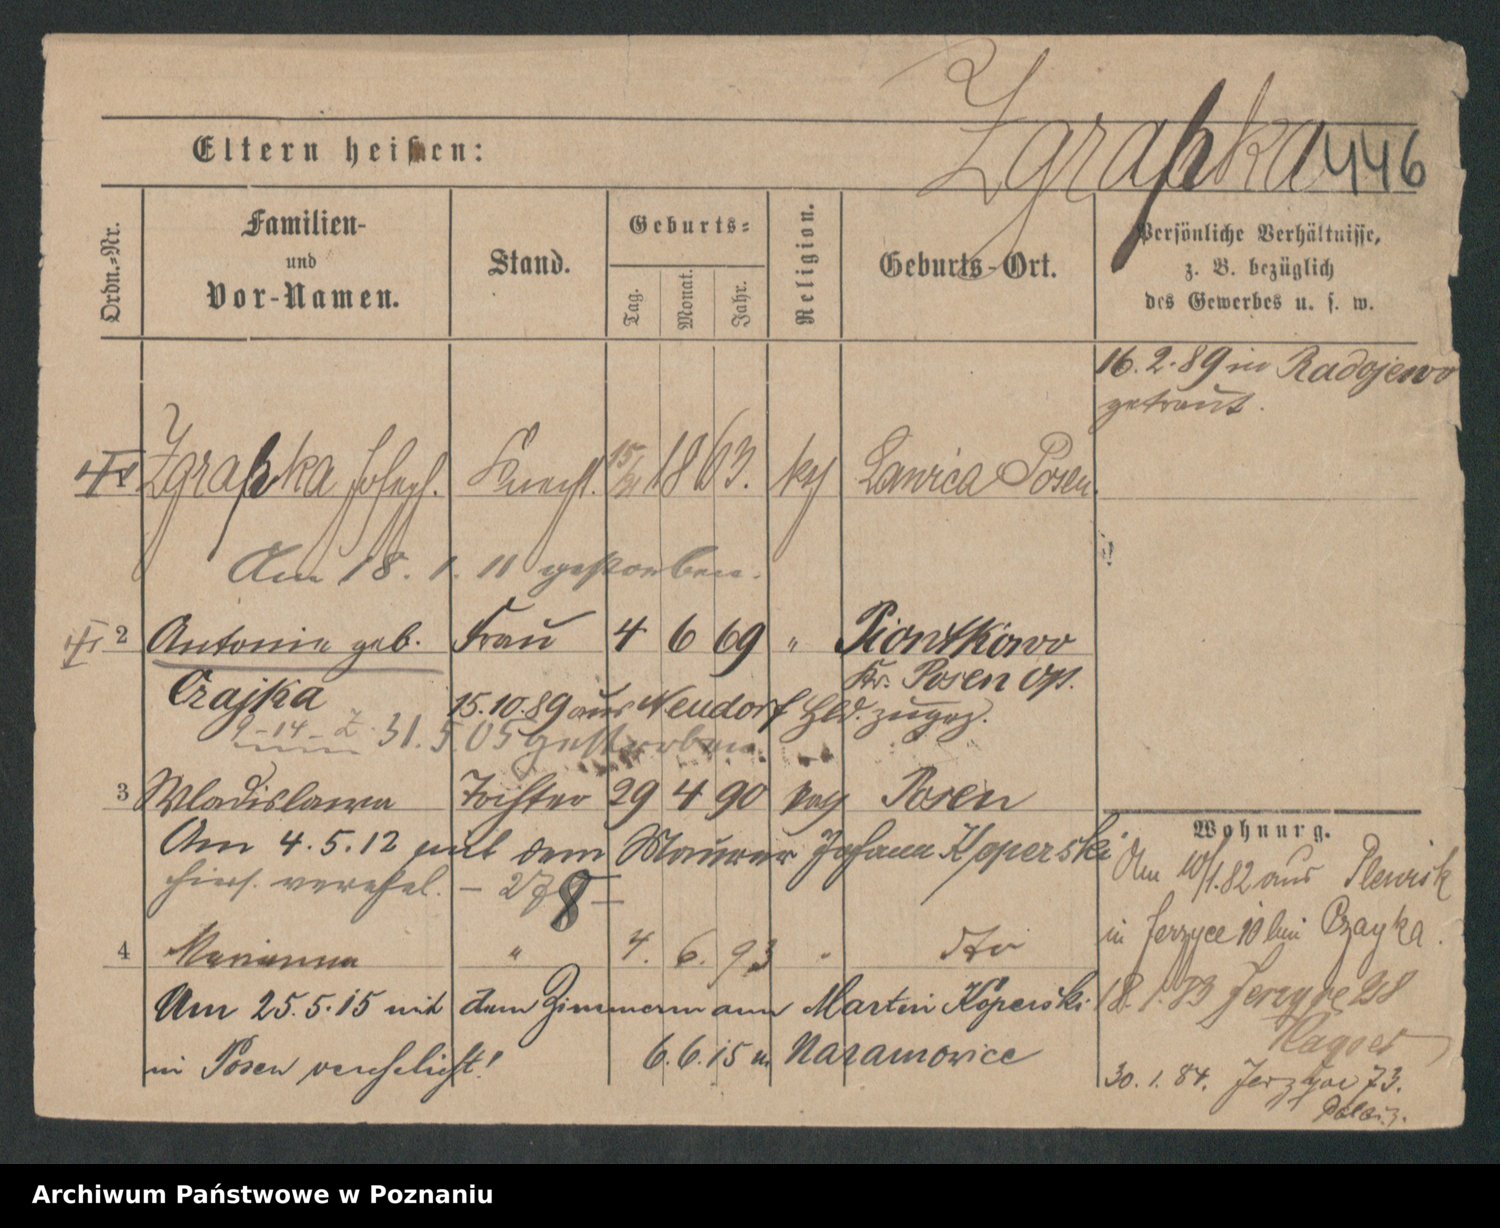 Zgrapka 446
Eltern heißen:
Ordn.=Nr.
Familien- und Vor-Namen.
Stand.
Geburts=
Tag.
Monat.
Jahr.
Religion.
Geburts-Ort.
Persönliche Verhältnisse,
z. B. bezüglich
des Gewerbes u. s. w.
16.2.89 in Radojewo
getraut.
Zgrapka Joseph. Knecht. 1863. kath Lawica Posen.
Am 18. 1. 11 gestorben.
2 Antonie geb. Frau 4 6 69 " Piontkowo
Czajka Kr. Posen Ost.
15.10.89 aus Neudorf Hld. zugez.
31.5.05 gestorben.
3 Wladislawa Tochter 29 4 90 kath Posen
Am 4.5.12 mit dem Maurer Johann Koperski
hies. verehel. - 278
4 Marianna " 4. 6. 93 " dto
Am 25.5.15 mit dem Zimmermann Martin Koperski
in Posen verehelicht! 6.6.15 n. Naramowice
Wohnung.
Am 10/1.82 aus Plewisk
in Jerzyce 10 bei Czayka.
18.1.83 Jerzyce 28
30.1.84. Jerzyce 73.